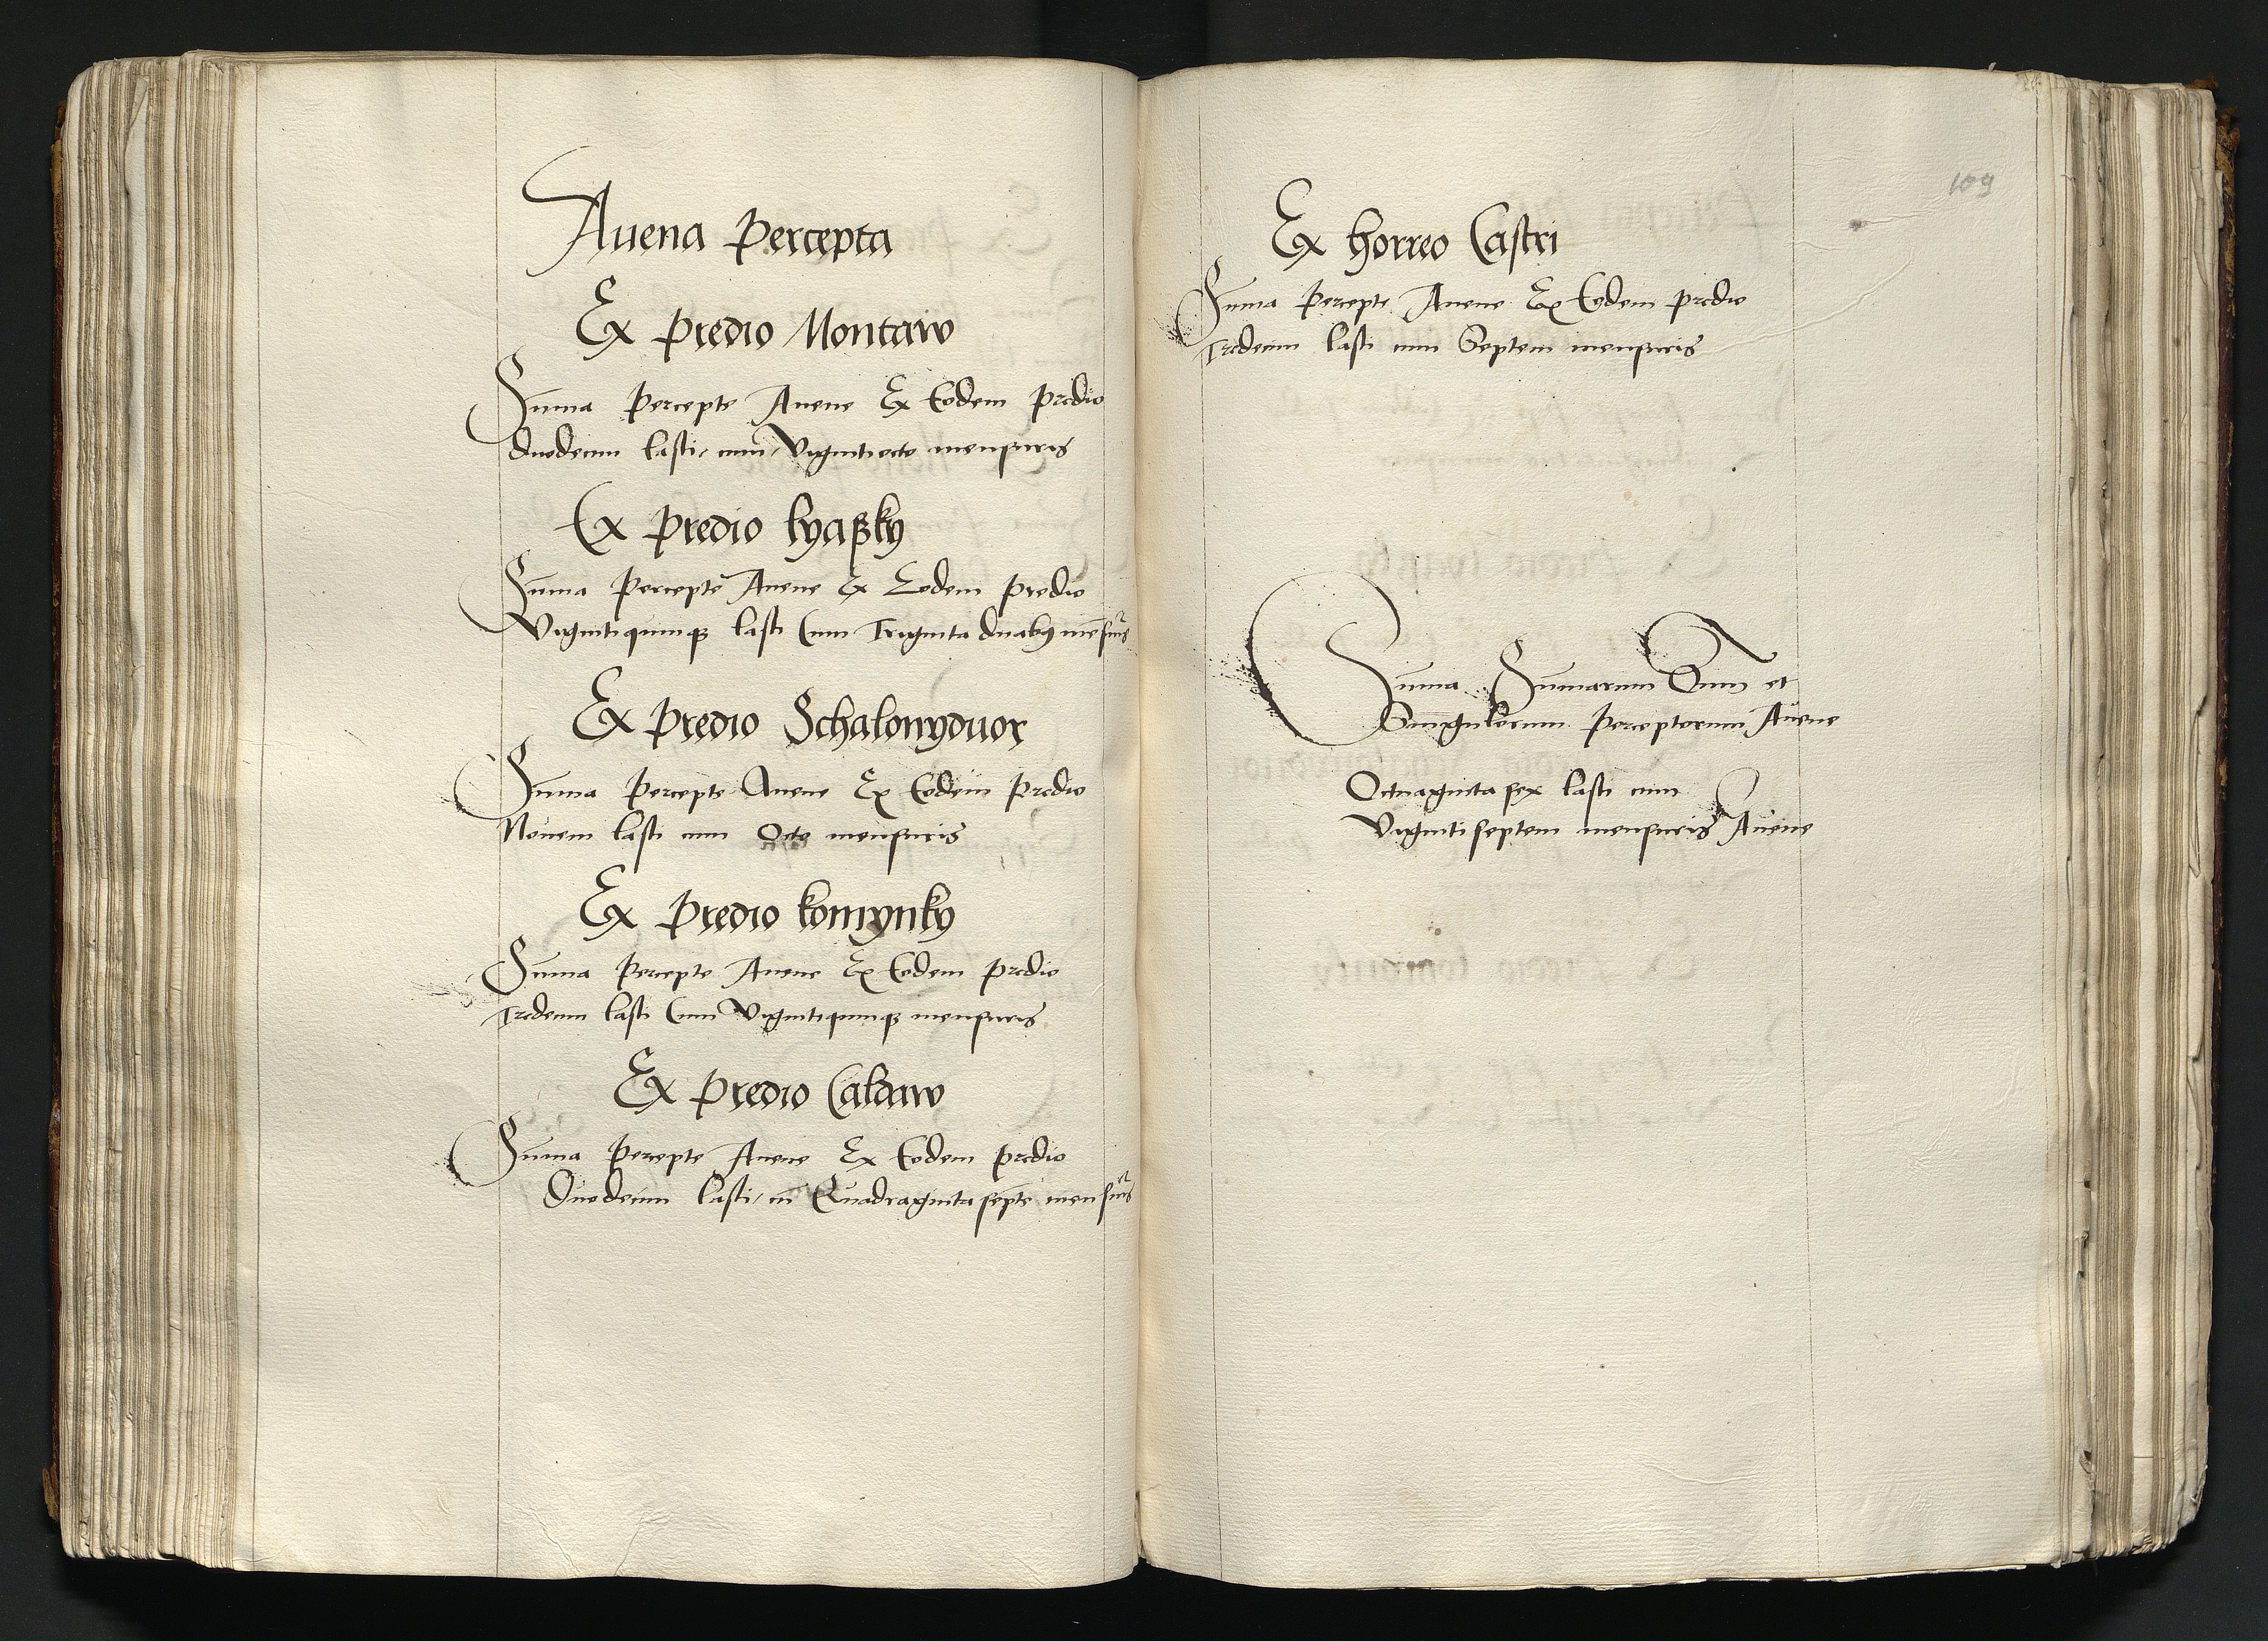 Auena Percepta
Ex Predio Montaw
Suma Percepte Auene Ex Eodem Predio
duodecim lasti, cum, Vigintiocto mensuris
Ex Predio lyaßky
Suma Percepte Auene Ex Eodem Predio
Viginti quinqꝫ lasti Cum Triginta duabꝰ mēsuris
Ex Predio Schalonyduor
Suma Percepte Auene Ex Eodem Predio
Nouem lasti cum Octo mensuris
Ex Predio komynky
Suma Percepte Auene Ex Eodem Predio
Tredecim lasti Cum Vigintiquinqꝫ mensuris
Ex Predio Caldaw
Suma Percepte Auene Ex Eodem Predio
Duodecim lasti, cū Quadraginta septē mensuris
109
Ex horreo Castri
Suma Percepte Auene Ex Eodem predio
Tredecim lasti cum Septem mensuris
Suma Sumarum Oīum et
Singulorum Perceptorum Auene
Octuaginta sex lasti cum
Viginti septem mensuris Auene